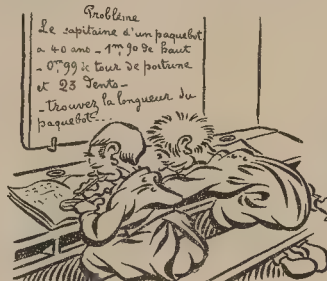 Problème
Le capitaine d'un paquebot
a 40 ans - 1m,90 de haut
- 0m,99 de tour de poitrine
et 23 dents -
- trouvez la longueur du
paquebot...